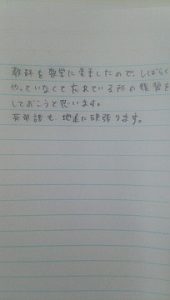 教科を数学に変更したので、しばらく
やっていなくて忘れている所の復習を
しておこうと思います。
英単語も、地道に頑張ります。